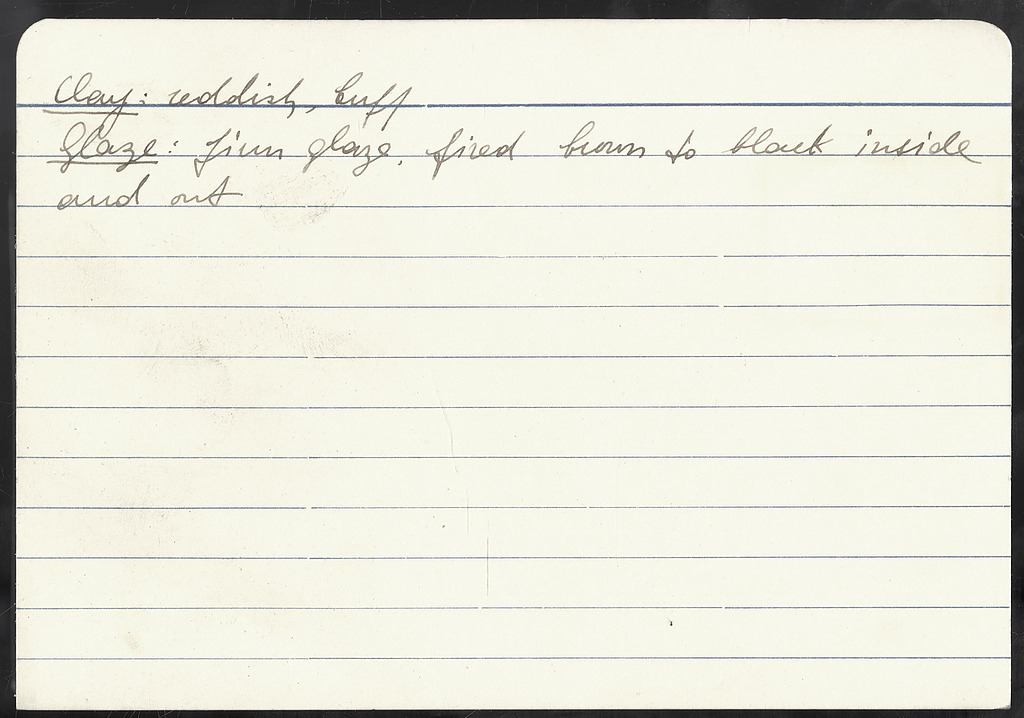 Clay: reddish, buff
Glaze: firm glaze, fired brown to black inside
and out